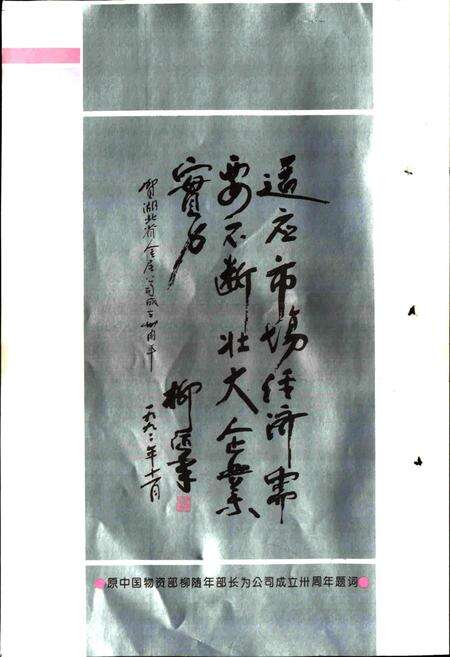 适应市場经济需
要不断壮大企業
實力
賀湖北省金属公司成立卅周年
柳随年
一九九二年十一月
原中国物资部柳随年部长为公司成立卅周年题词